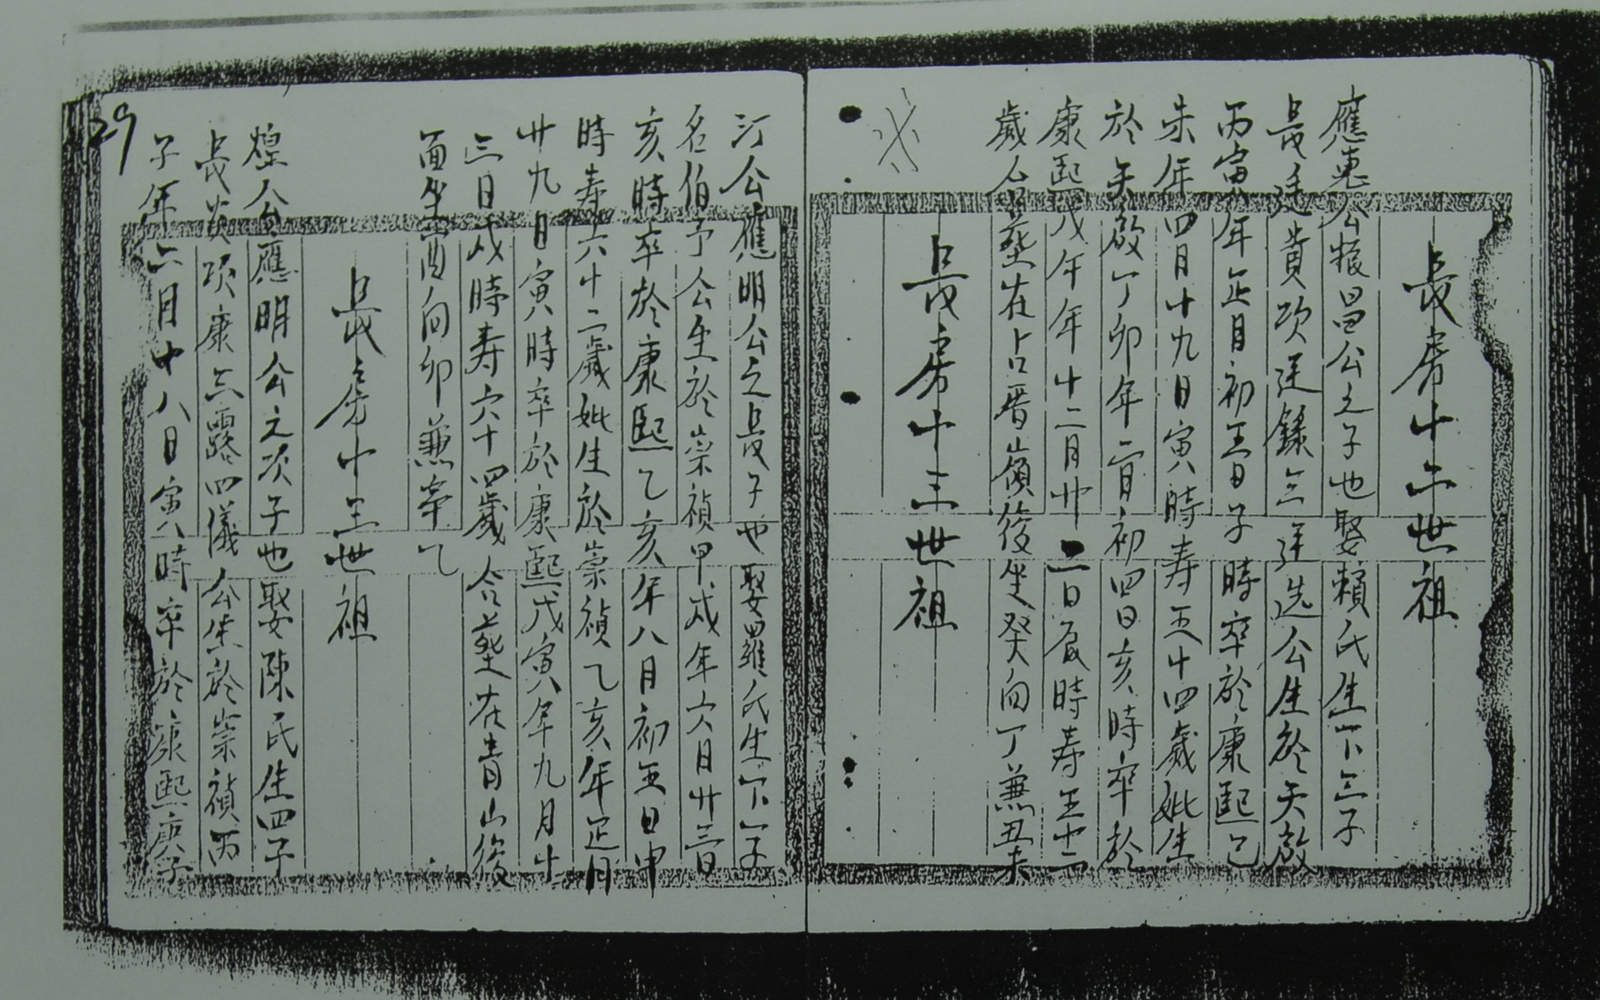 長房十二世祖
應惠公振昌公之子也娶賴氏生下三子
長廷貴次廷錄三廷選公生於天啟
丙寅年正月初五日子時卒於康熙己
未年四月十九日寅時寿五十四歲妣生
於天啟丁卯年二月初四日亥時卒於
康熙戊午年十二月廿二日辰時寿五十二
歲合墓在占晋嶺後坐癸向丁兼丑未
長房十三世祖
汀公應明公之長子也娶羅氏生下一子
名伯予公生於崇禎甲戌年六月廿三日
亥時卒於康熙乙亥年八月初五日申
時寿六十二歲妣生於崇禎乙亥年正月
廿九日寅時卒於康熙戊寅年九月十
三日戌時寿六十四歲合葬在青山後
面坐酉向卯兼辛乙
長房十三世祖
煌公應明公之次子也娶陳氏生四子
長炎次康三露四儀公生於崇禎丙
子年六月十八日寅時卒於康熙庚子
29